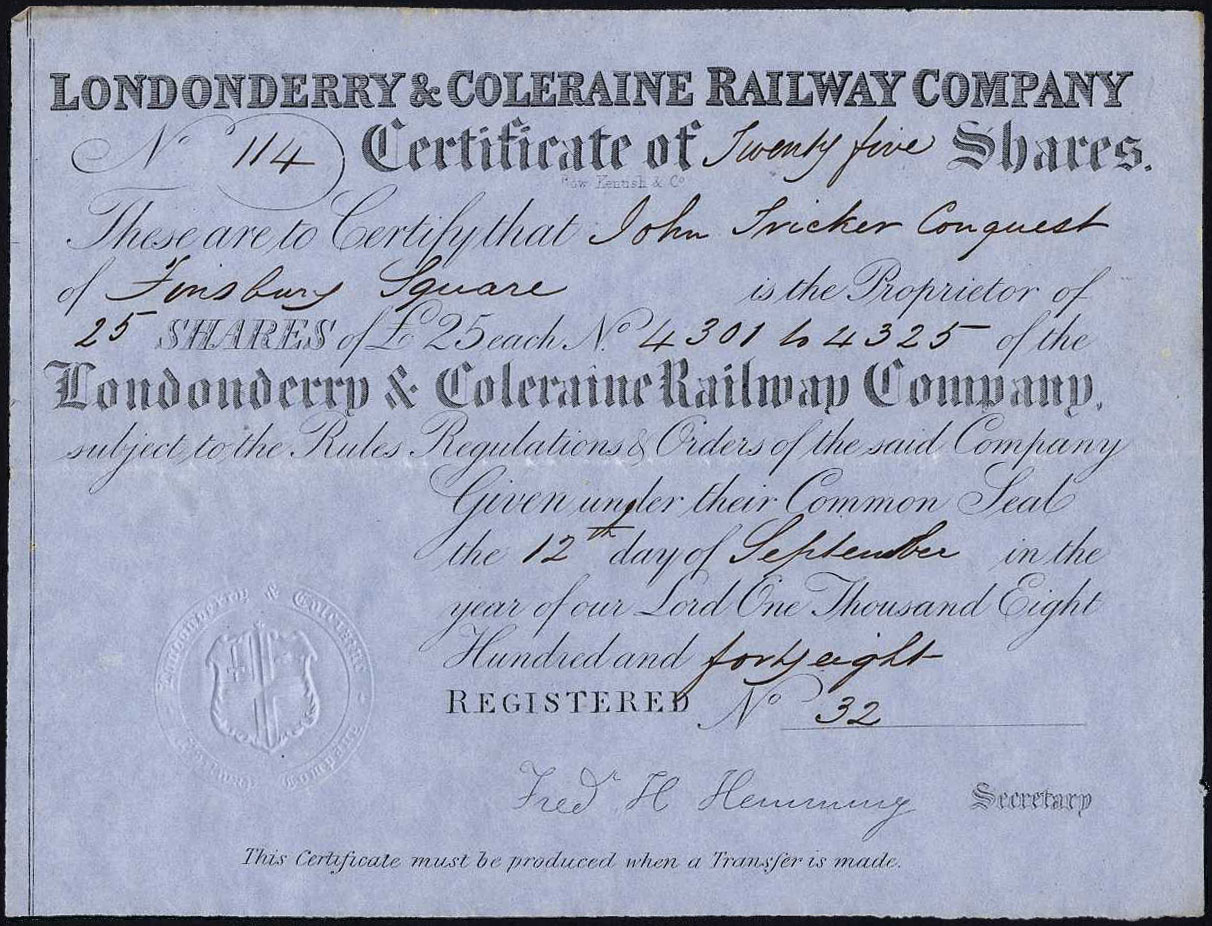 LONDONDERRY & COLERAINE RAILWAY COMPANY
No 114 Certificate of Twenty five Shares.
Kentish & Co
These are to Certify that John Tricker Conquest
of Finsbury Square is the Proprietor of
25 SHARES of £25 each No. 4301 to 4325 of the
Londonderry & Coleraine Railway Company,
subject to the Rules Regulations & Orders of the said Company
Given under their Common Seal
the 12th day of September in the
year of our Lord One Thousand Eight
Hundred and forty eight
REGISTERED No 32
Londonderry & Coleraine Railway Company
Fredk H Hemming Secretary
This Certificate must be produced when a Transfer is made.